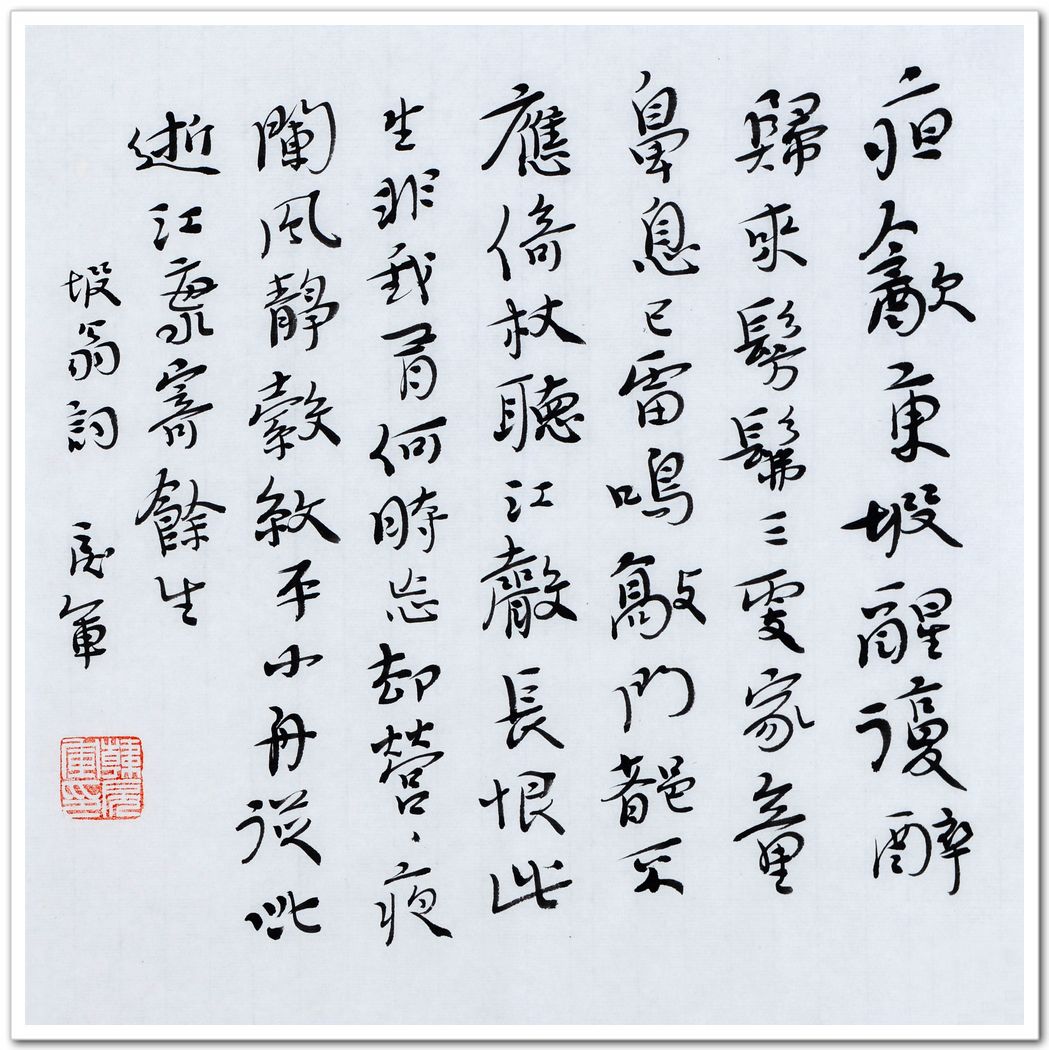 夜㱃東坡醒復醉
歸來髣髴三更家童
鼻息已雷鳴敲門都不
應倚杖聽江聲長恨此
生非我有何時忘却營〻夜
闌風靜縠紋平小舟從此
逝江海寄餘生
坡翁詞 軍